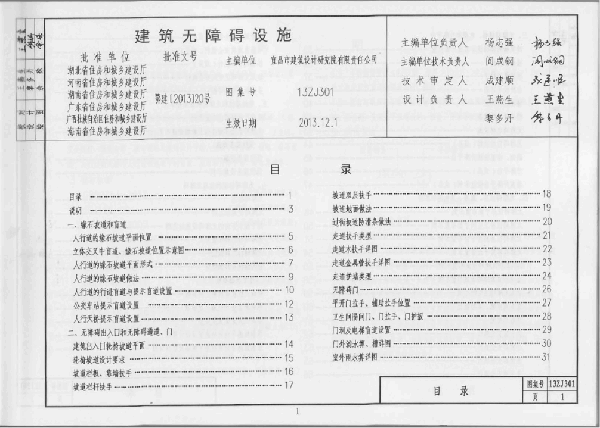 建筑无障碍设施
批准单位 批准文号
湖北省住房和城乡建设厅
河南省住房和城乡建设厅
湖南省住房和城乡建设厅
广东省住房和城乡建设厅
广西壮族自治区住房和城乡建设厅
海南省住房和城乡建设厅
鄂建[2013]20号
主编单位 宜昌市建筑设计研究院有限责任公司
图集号 13ZJ301
生效日期 2013.12.1
主编单位负责人 杨志强
主编单位技术负责人
技术审定人 成建顺
设计负责人 王燕生
黎多丹
目 录
目录 1
说明 3
一、缘石坡道和盲道
人行道的缘石坡道平面位置 5
立体交叉平盲道、缘石坡道位置示意图 6
人行道的缘石坡道平面形式 7
人行道的缘石坡道做法 9
人行道的行进盲道与提示盲道设置 10
公交车站提示盲道设置 12
人行天桥提示盲道设置 13
二、无障碍出入口和无障碍通道、门
建筑出入口轮椅坡道平面 14
轮椅坡道设计要求 15
坡道栏板、靠墙扶手 16
坡道栏杆扶手 17
坡道双层扶手 18
坡道地面做法 19
过街坡道防滑条做法 20
走道扶手类型 21
走道木扶手详图 22
走道金属管扶手详图 23
走道护墙类型 24
无障碍门 26
平开门拉手、辅助拉手位置 27
卫生间隔间门、门拉手、门护板 28
门洞及电梯盲道设置 29
门外的水箅、槽详图 30
室外雨水箅详图 31
目 录
图集号 13ZJ301
页 1
1